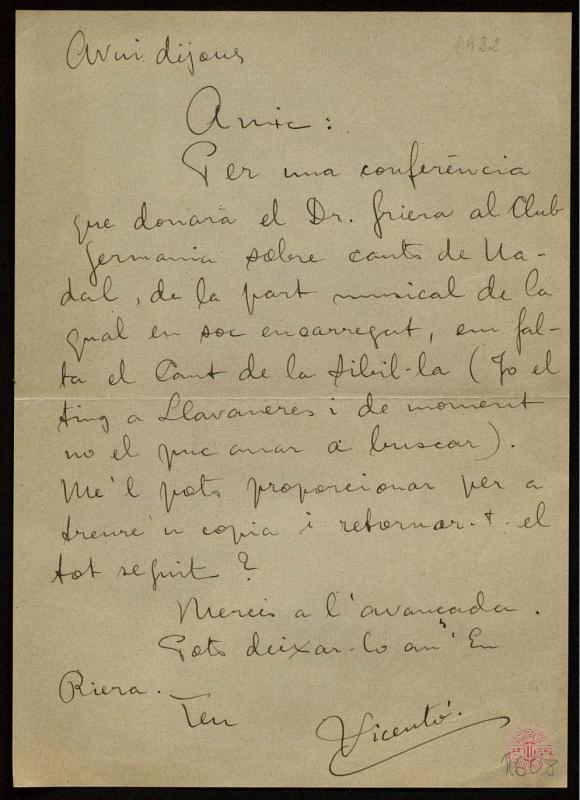 Avui dijous
1932
Amic:
Per una conferència
que donarà el Dr. Griera al Club
Germania sobre cants de Na-
dal, de la part musical de la
qual en soc encarregat, em fal-
ta el Cant de la Sibil-la (Jo el
tinc a Llavaneres i de moment
no el puc anar a buscar).
Me'l pots proporcionar per a
treure'n copia i retornar-t-el
tot seguit?
Mercis a l'avançada.
Pots deixar-lo an' En
Riera.
Teu
Vicentó.